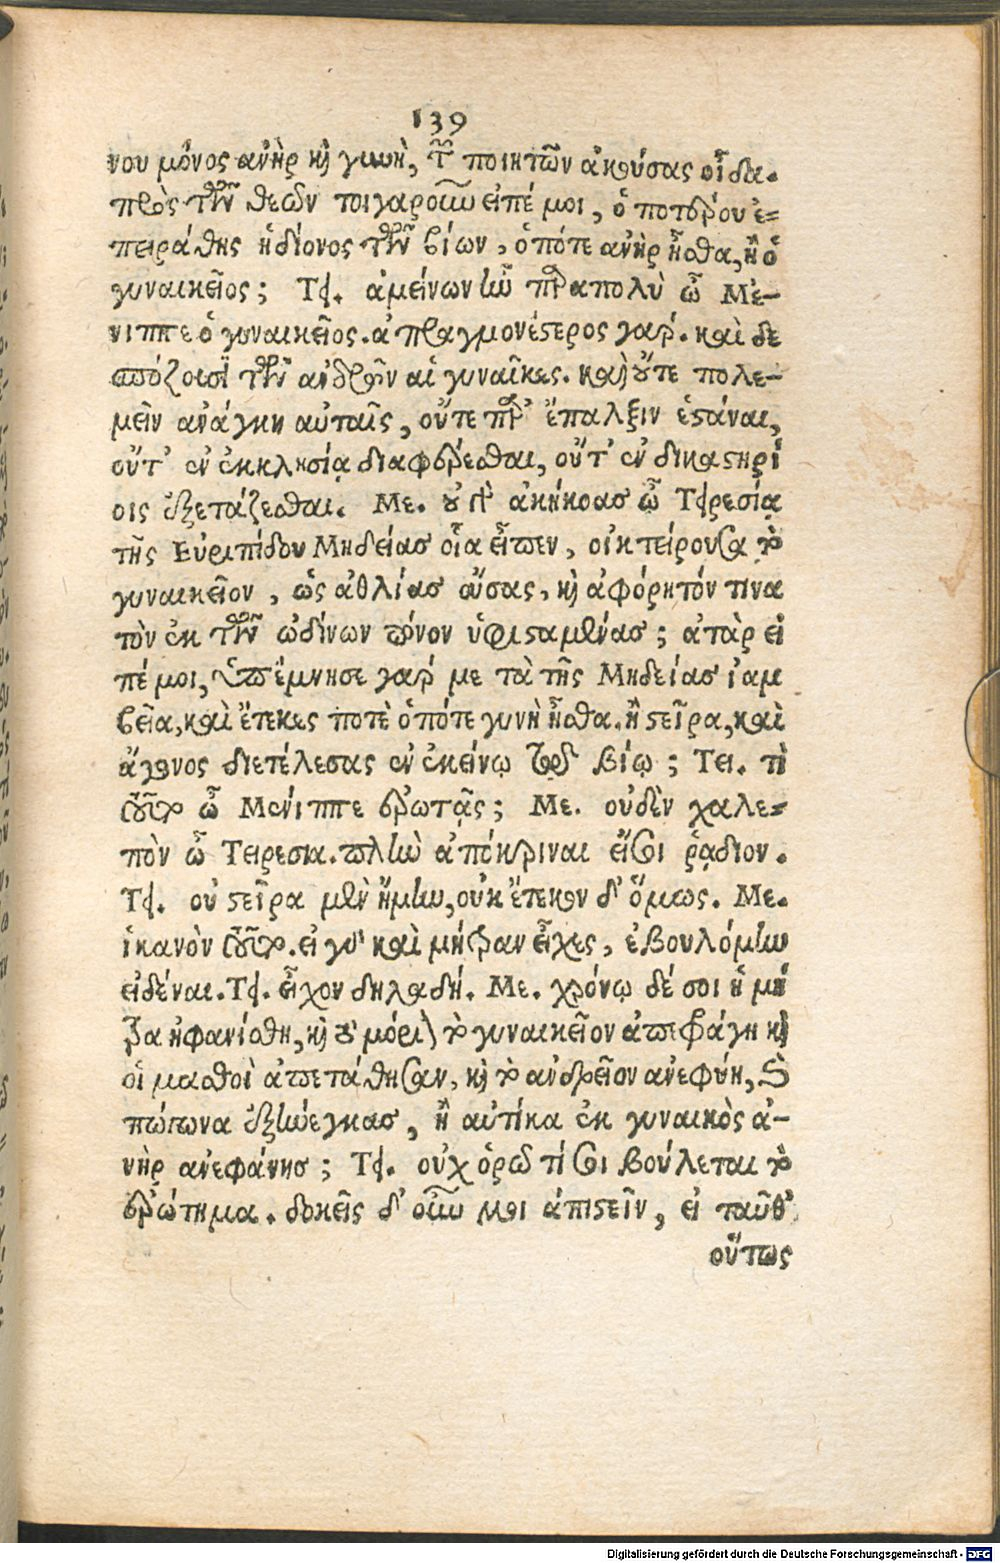 139
νου μόνος ἀνὴρ καὶ γυνὴ, τῶν ποιητῶν ἀκούσας οἶδα.
πρὸς τῶν θεῶν τοιγαροῦν εἰπέ μοι, ὁποτέρου ἐ=
πειράθης ἡδίονος τῶν βίων, ὁπότε ἀνὴρ ἦσθα, ἢ ὁ
γυναικεῖος; Τει. ἀμείνων ἦν παραπολὺ ὦ Μέ-
νιππε ὁ γυναικεῖος. ἀπραγμονέστερος γάρ. καὶ δε
σπόζουσι τῶν ἀνδρῶν αἱ γυναῖκες. καὶ οὔτε πολε-
μεῖν ἀνάγκη αὐταῖς, οὔτε παρ' ἔπαλξιν ἑστάναι,
οὔτ' ἐν ἐκκλησίᾳ διαφέρεσθαι, οὔτ' ἐν δικαστηρί
οις ἐξετάζεσθαι. Με. οὐ γὰρ ἀκήκοας ὦ Τειρεσία
τῆς Εὐριπίδου Μηδείας οἷα εἶπεν, οἰκτείρουσα τὸ
γυναικεῖον, ὡς ἀθλίας οὔσας, καὶ ἀφόρητόν τινα
τὸν ἐκ τῶν ὠδίνων πόνον ὑφισταμένας; ἀτὰρ εἰ
πέ μοι, ὑπέμνησε γάρ με τὰ τῆς Μηδείας ἰαμ
βεῖα, καὶ ἔτεκες ποτὲ ὁπότε γυνὴ ἦσθα, ἢ στεῖρα, καὶ
ἄγονος διετέλεσας ἐν ἐκείνῳ τῷ βίῳ; Τει. τὶ
τοῦτο ὦ Μένιππε ἐρωτᾷς; Με. οὐδὲν χαλε=
πὸν ὦ Τειρεσια. πλὴν ἀπόκριναι εἴ σοι ῥᾴδιον.
Τει. οὐ στεῖρα μὲν ἤμην, οὐκ ἔτεκον δ' ὅμως. Με.
ἱκανὸν τοῦτο. εἰ γὰρ καὶ μήτραν εἶχες, ἐβουλόμην
εἰδέναι. Τει. εἶχον δηλαδή. Με. χρόνῳ δέ σοι ἡ μή
τρα ἠφανίσθη, καὶ τὸ μόριον τὸ γυναικεῖον ἀπεφράγη καὶ
οἱ μασθοὶ ἀπεστάθησαν, καὶ τὸ ἀνδρεῖον ἀνεφύη, καὶ
πώγωνα ἐξήνεγκας, ἢ αὐτίκα ἐκ γυναικὸς ἀ-
νὴρ ἀνεφάνης; Τει. οὐχ ὁρῶ τί σοι βούλεται τὸ
ἐρώτημα. δοκεῖς δ' οὖν μοι ἀπιστεῖν, εἰ ταῦθ'
οὕτως
Digitalisierung gefördert durch die Deutsche Forschungsgemeinschaft - DFG